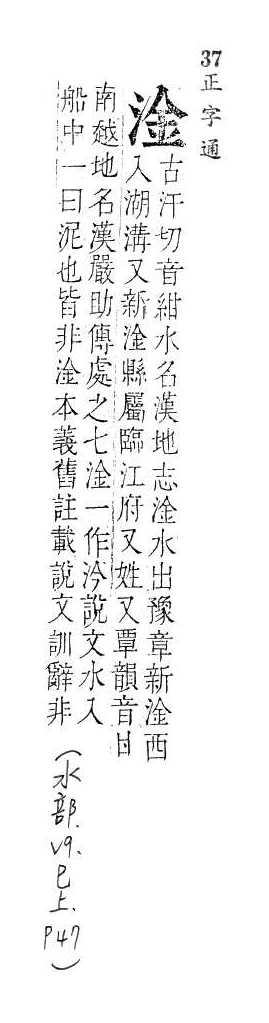 37正字通
淦
古汗切音紺水名漢地志淦水出豫章新淦西
入湖溝又新淦縣屬臨江府又姓又覃韻音甘
南越地名漢嚴助傳處之七淦一作汵說文水入
船中一曰泥也皆非淦本義舊註載說文訓辭非
(水部.v9.巳上.p47)